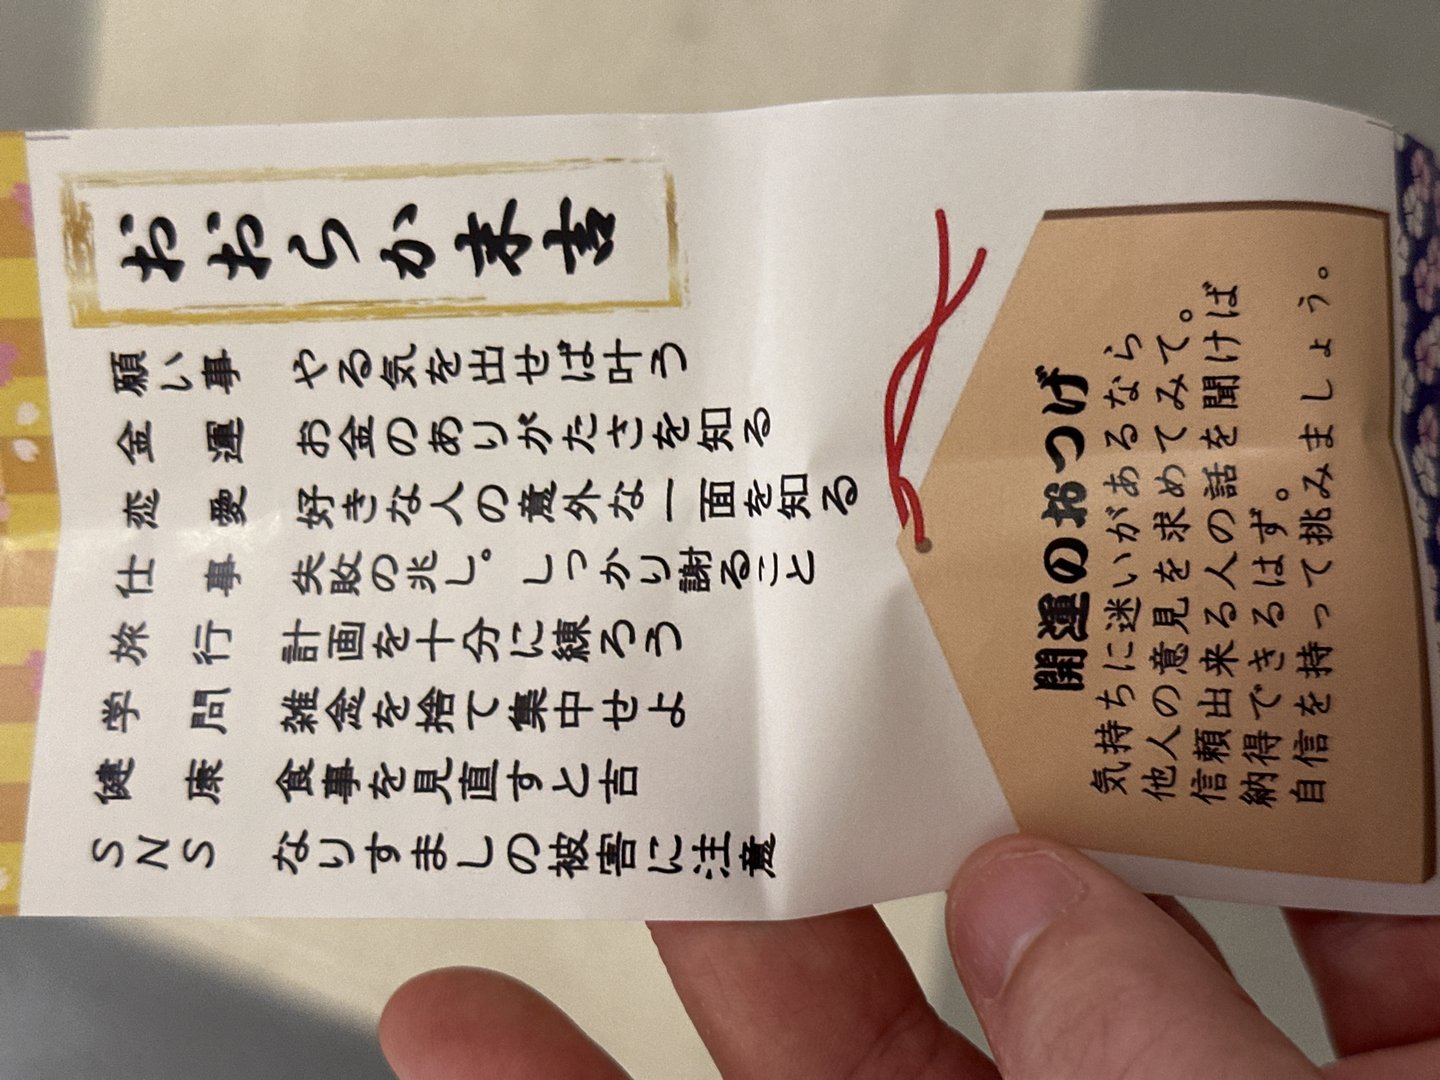 おおらか末吉
願い事 やる気を出せば叶う
金運 お金のありがたさを知る
恋愛 好きな人の意外な一面を知る
仕事 失敗の兆し。しっかり謝ること
旅行 計画を十分に練ろう
学問 雑念を捨て集中せよ
健康 食事を見直すと吉
SNS なりすましの被害に注意
開運のおつげ
気持ちに迷いがあるなら
他人の意見を求めてみて。
信頼出来る人の話を聞けば
納得できるはず。
自信を持って挑みましょう。